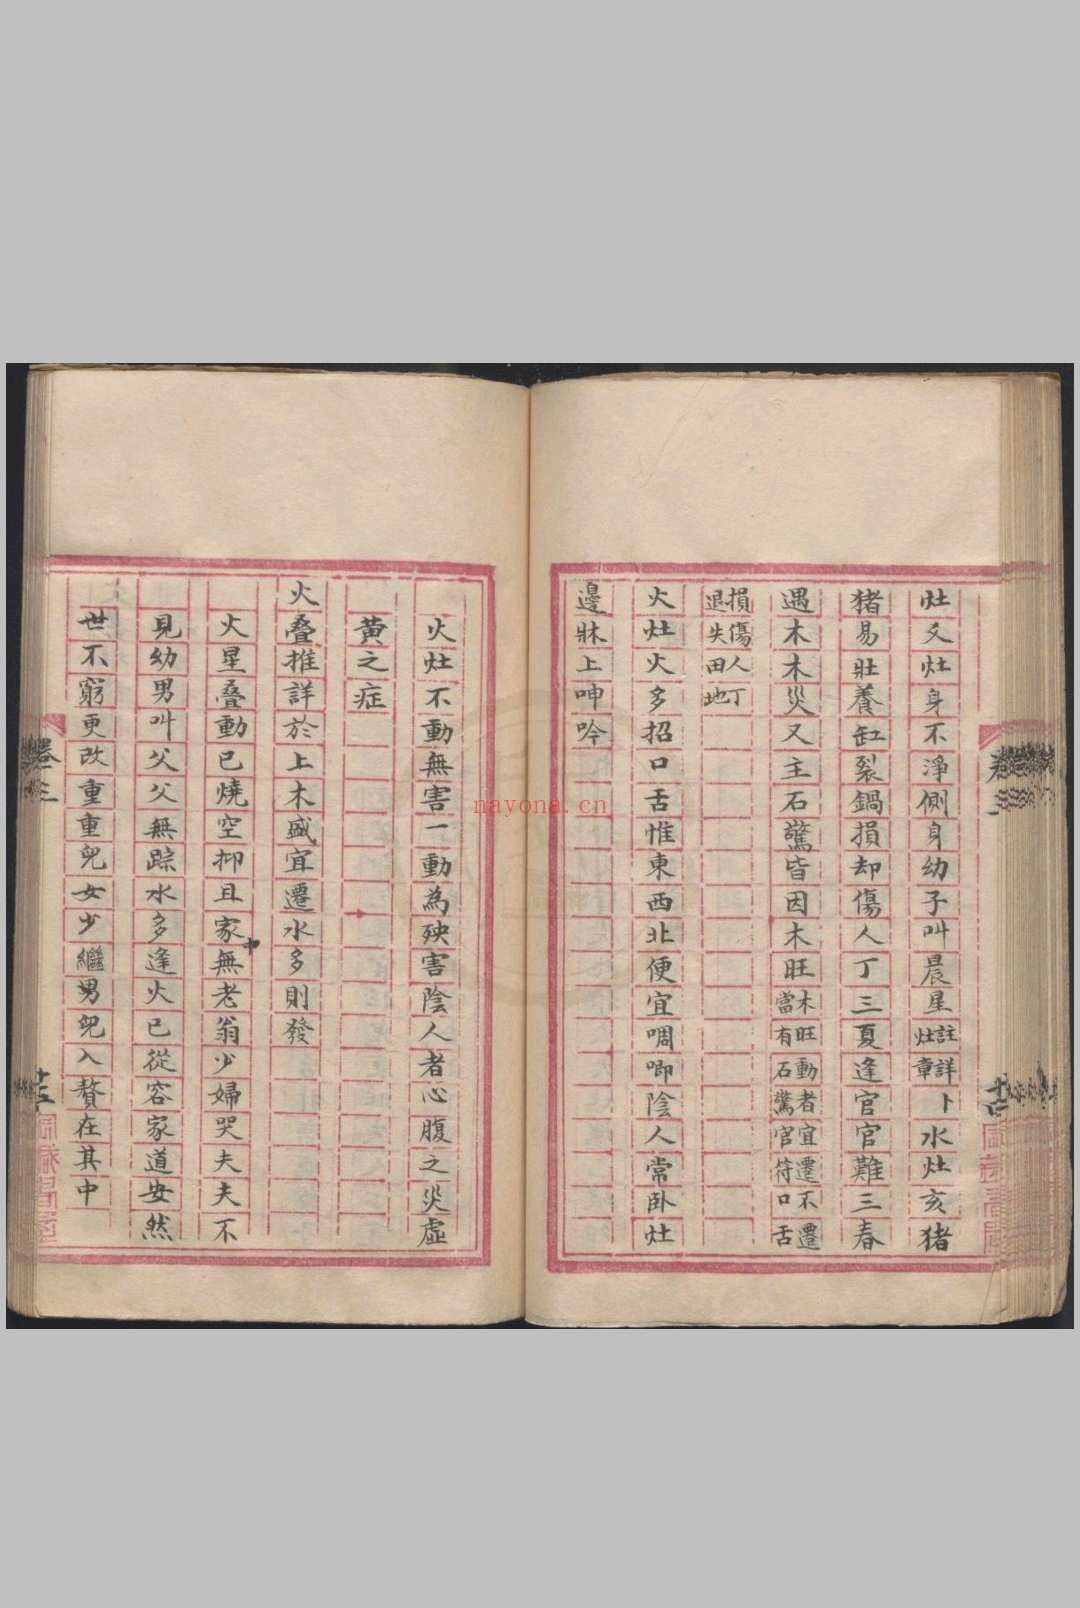 灶爻灶身不淨側身幼子叫晨星註詳灶章卜水灶亥猪
猪易壯養缸裂鍋損却傷人丁三夏逢官官難三春
遇木木災又主石驚皆因木旺木旺動者宜遷不遷當有石驚官符口舌
損傷人丁退失田地
火灶火多招口舌惟東西北便宜啁唧陰人常卧灶
邊牀上呻吟
火灶不動無害一動為殃害陰人者心腹之災虛
黃之症
火叠推詳於上木盛宜遷水多則發
火星叠動已燒空抑且家中無老翁少婦哭夫夫不
見幼男叫父父無踪水多逢火已從容家道安然
世不窮更改重重兒女少繼男兒入贅在其中
卷三
nayona.cn